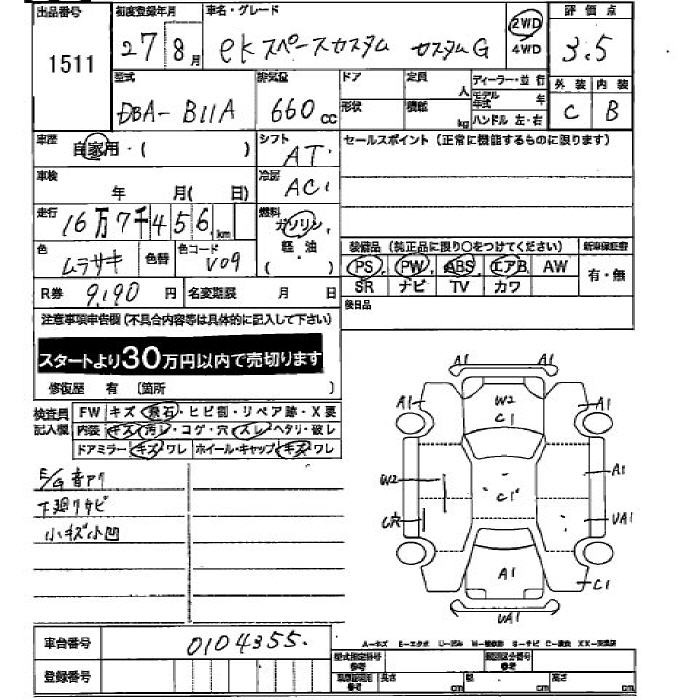 出品番号 初度登録年月 車名・グレード 2WD 評価点
1511 27 8月 ekスペースカスタム カスタムG 4WD 3.5
型式 排気量 ドア 定員 ディーラー・並行 外装 内装
DBA-B11A 660cc 形状 積載 人 kg モデル年式 年 ハンドル 左・右 C B
車歴 自家用・( ) シフト AT セールスポイント (正常に機能するものに限ります)
車検 年 月( 日) 冷房 AC
走行 16万7千456km 燃料 ガソリン 軽・油 ( )
色 ムラサキ 色替 色コード V09 装備品 (純正品に限り○をつけてください) 新車保証書
PS PW ABS エアB AW 有・無
R券 9,190円 名変期限 月 日 SR ナビ TV カワ
後日品
注意事項申告欄 (不具合内容等は具体的に記入して下さい)
スタートより30万円以内で売切ります
修復歴 有 [箇所 ]
検査員記入欄 FW キズ・飛石・ヒビ割・リペア跡・X要
内装 キズ・汚レ・コゲ・穴・スレ・ヘタリ・破レ
ドアミラー キズ・ワレ ホイール・キャップ キズ・ワレ
E/G音アリ
下廻りサビ
小キズ小凹
A1 A1
A1 W2 A1
C1
W2 C1 A1
C穴 UA1
A1 C1
UA1
車台番号 0104355
登録番号
型式指定番号 参考 類別区分番号 参考
長さ cm 幅 cm 高さ cm